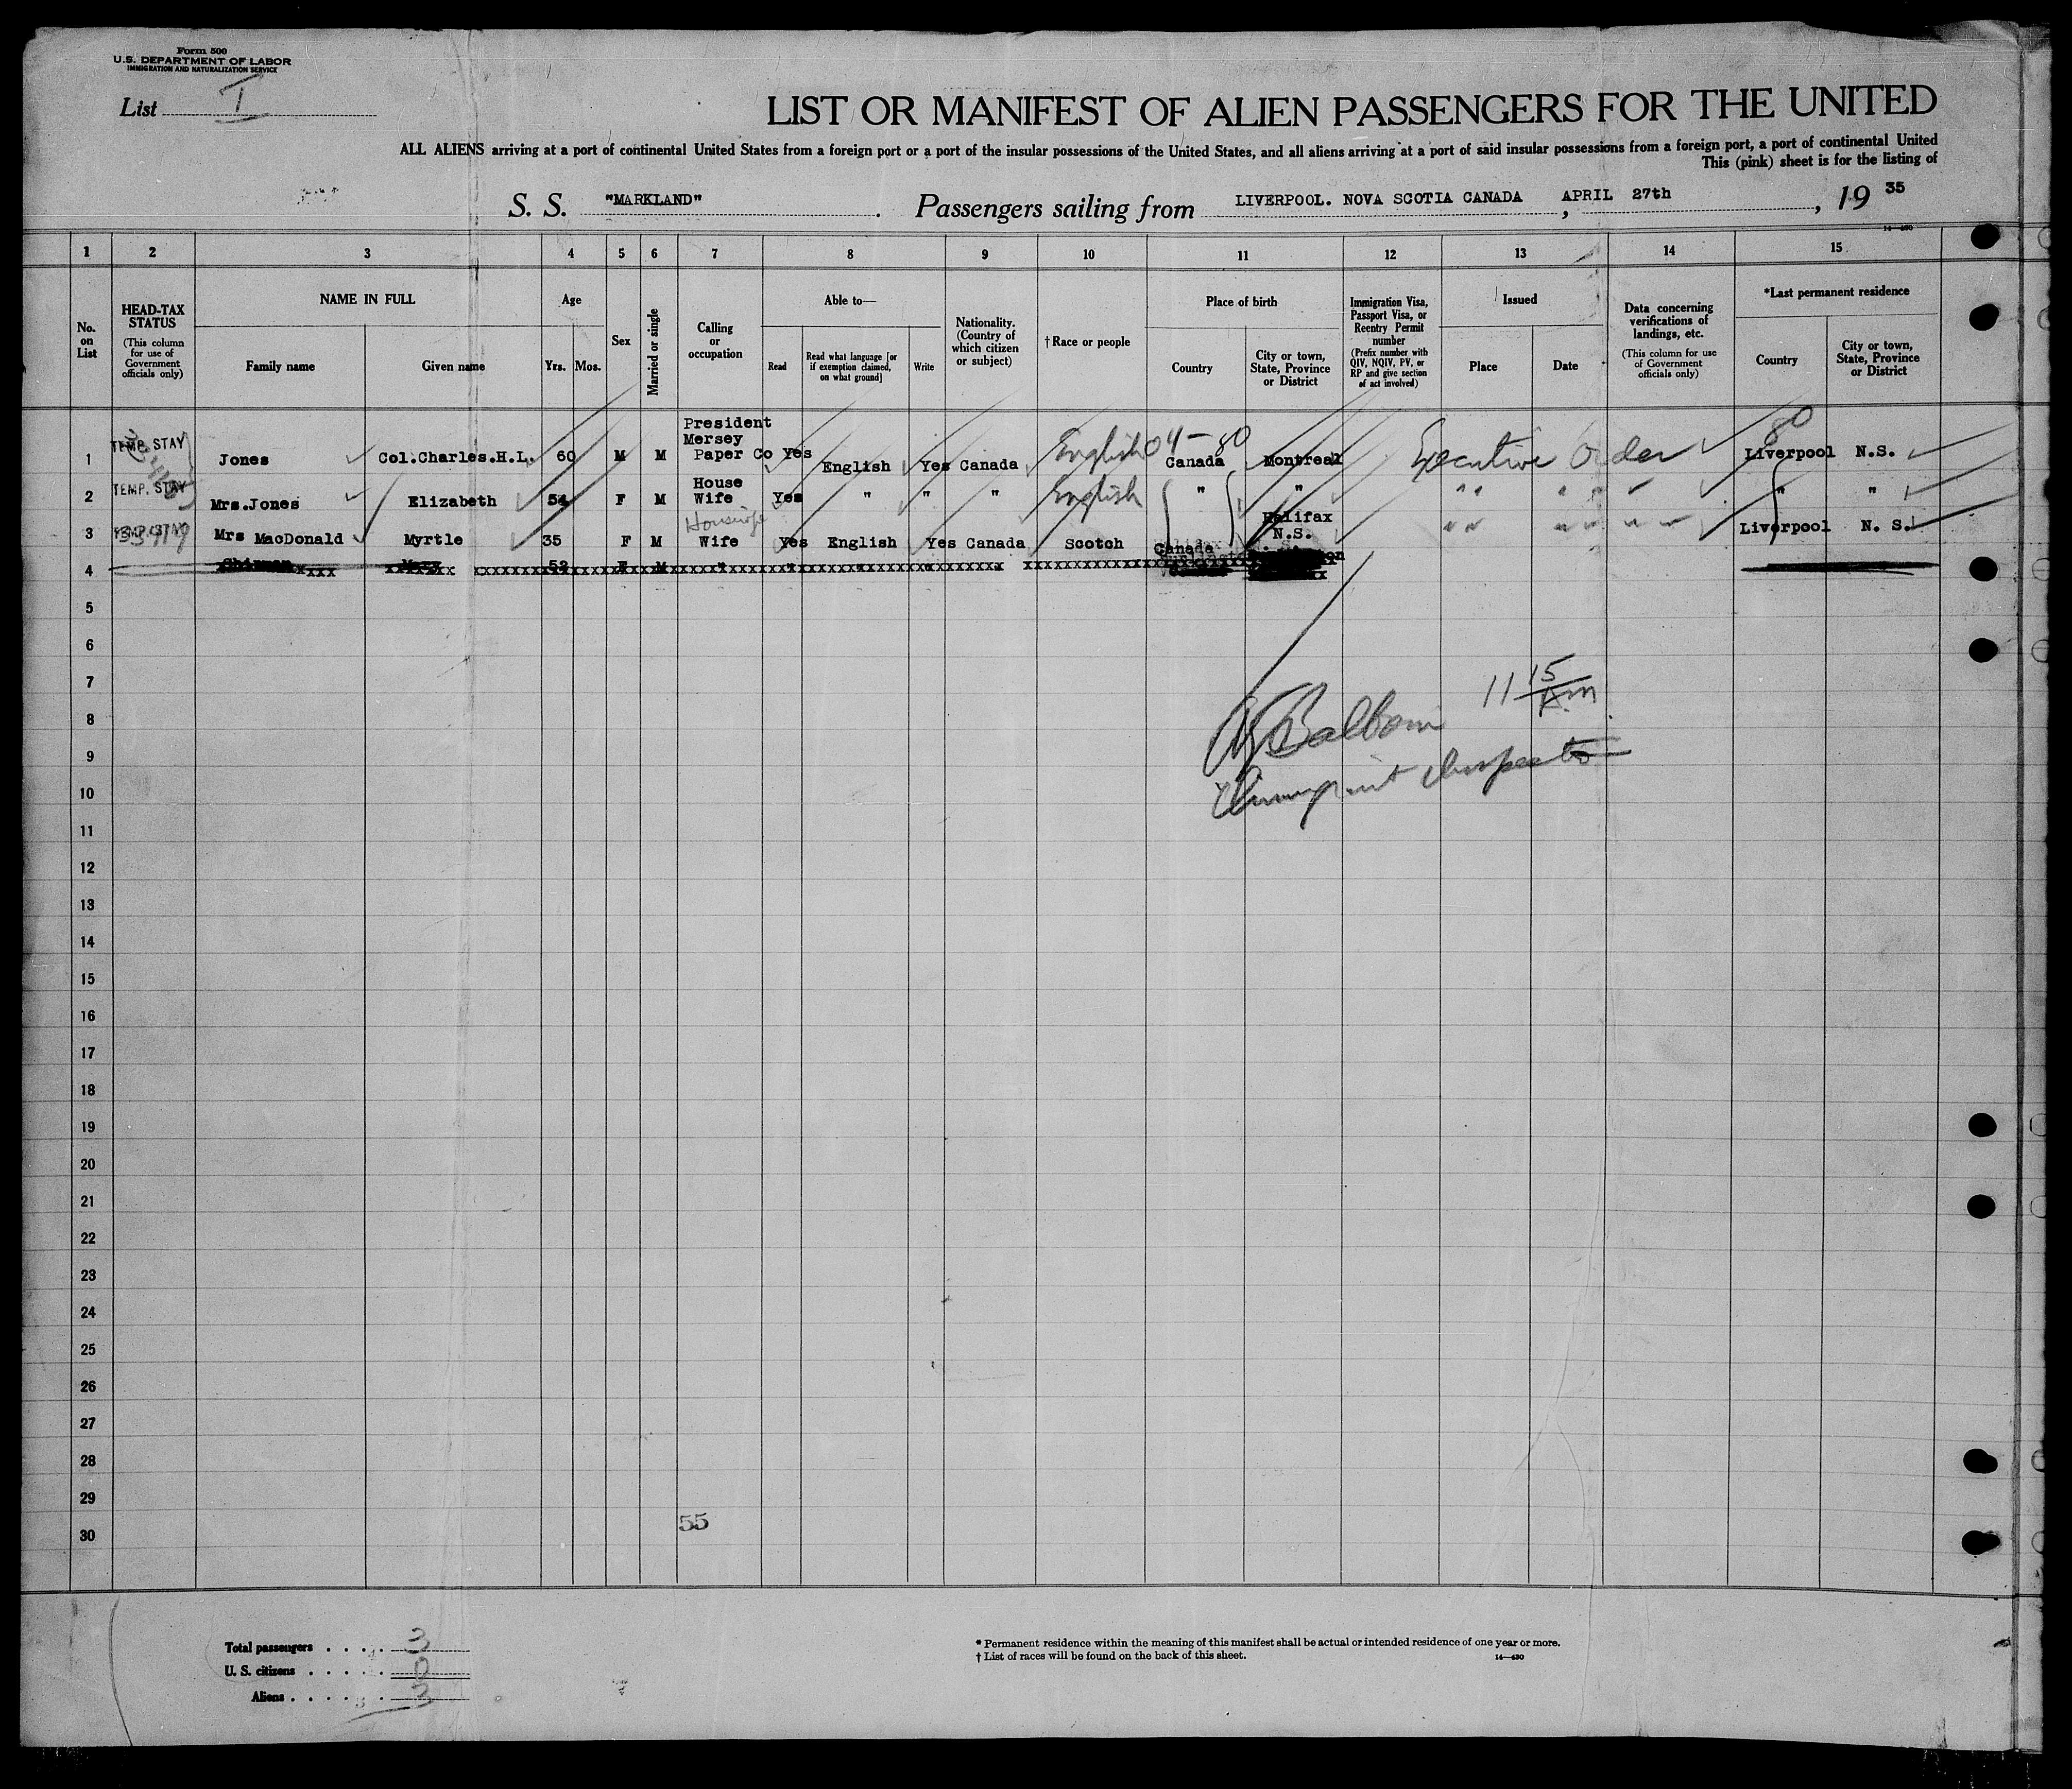 Form 500
U.S. DEPARTMENT OF LABOR
IMMIGRATION AND NATURALIZATION SERVICE
List I
LIST OR MANIFEST OF ALIEN PASSENGERS FOR THE UNITED
ALL ALIENS arriving at a port of continental United States from a foreign port or a port of the insular possessions of the United States, and all aliens arriving at a port of said insular possessions from a foreign port, a port of continental United
This (pink) sheet is for the listing of
S. S. "MARKLAND". Passengers sailing from LIVERPOOL. NOVA SCOTIA CANADA, APRIL 27th, 19 35
14—430
1 2 3 4 5 6 7 8 9 10 11 12 13 14 15
No. on List
HEAD-TAX STATUS
(This column for use of Government officials only)
NAME IN FULL
Family name
Given name
Age
Yrs. Mos.
Sex
Married or single
Calling or occupation
Able to—
Read
Read what language [or if exemption claimed, on what ground]
Write
Nationality. (Country of which citizen or subject)
†Race or people
Place of birth
Country
City or town, State, Province or District
Immigration Visa, Passport Visa, or Reentry Permit number
(Prefix number with QIV, NQIV, PV, or RP and give section of act involved)
Issued
Place
Date
Data concerning verifications of landings, etc.
(This column for use of Government officials only)
*Last permanent residence
Country
City or town, State, Province or District
1 TEMP. STAY Jones Col.Charles.H.L. 60 M M President Mersey Paper Co Yes English Yes Canada English 04-80 Canada Montreal Executive Order 80 Liverpool N.S.
2 TEMP. STAY Mrs.Jones Elizabeth 54 F M House Wife Yes " " " English " " " " " " " "
3 Mrs MacDonald Myrtle 35 F M Housewife Wife Yes English Yes Canada Scotch Canada Halifax N.S. " " " " " " Liverpool N. S.
4 Mary 52 F M " " " "
5
6
7
11 15 Am
8
9
10
11
12
13
14
15
16
17
18
19
20
21
22
23
24
25
26
27
28
29
55
30
Total passengers . . . . 3
U. S. citizens . . . . . 0
Aliens . . . . . 3
* Permanent residence within the meaning of this manifest shall be actual or intended residence of one year or more.
† List of races will be found on the back of this sheet.
14—430